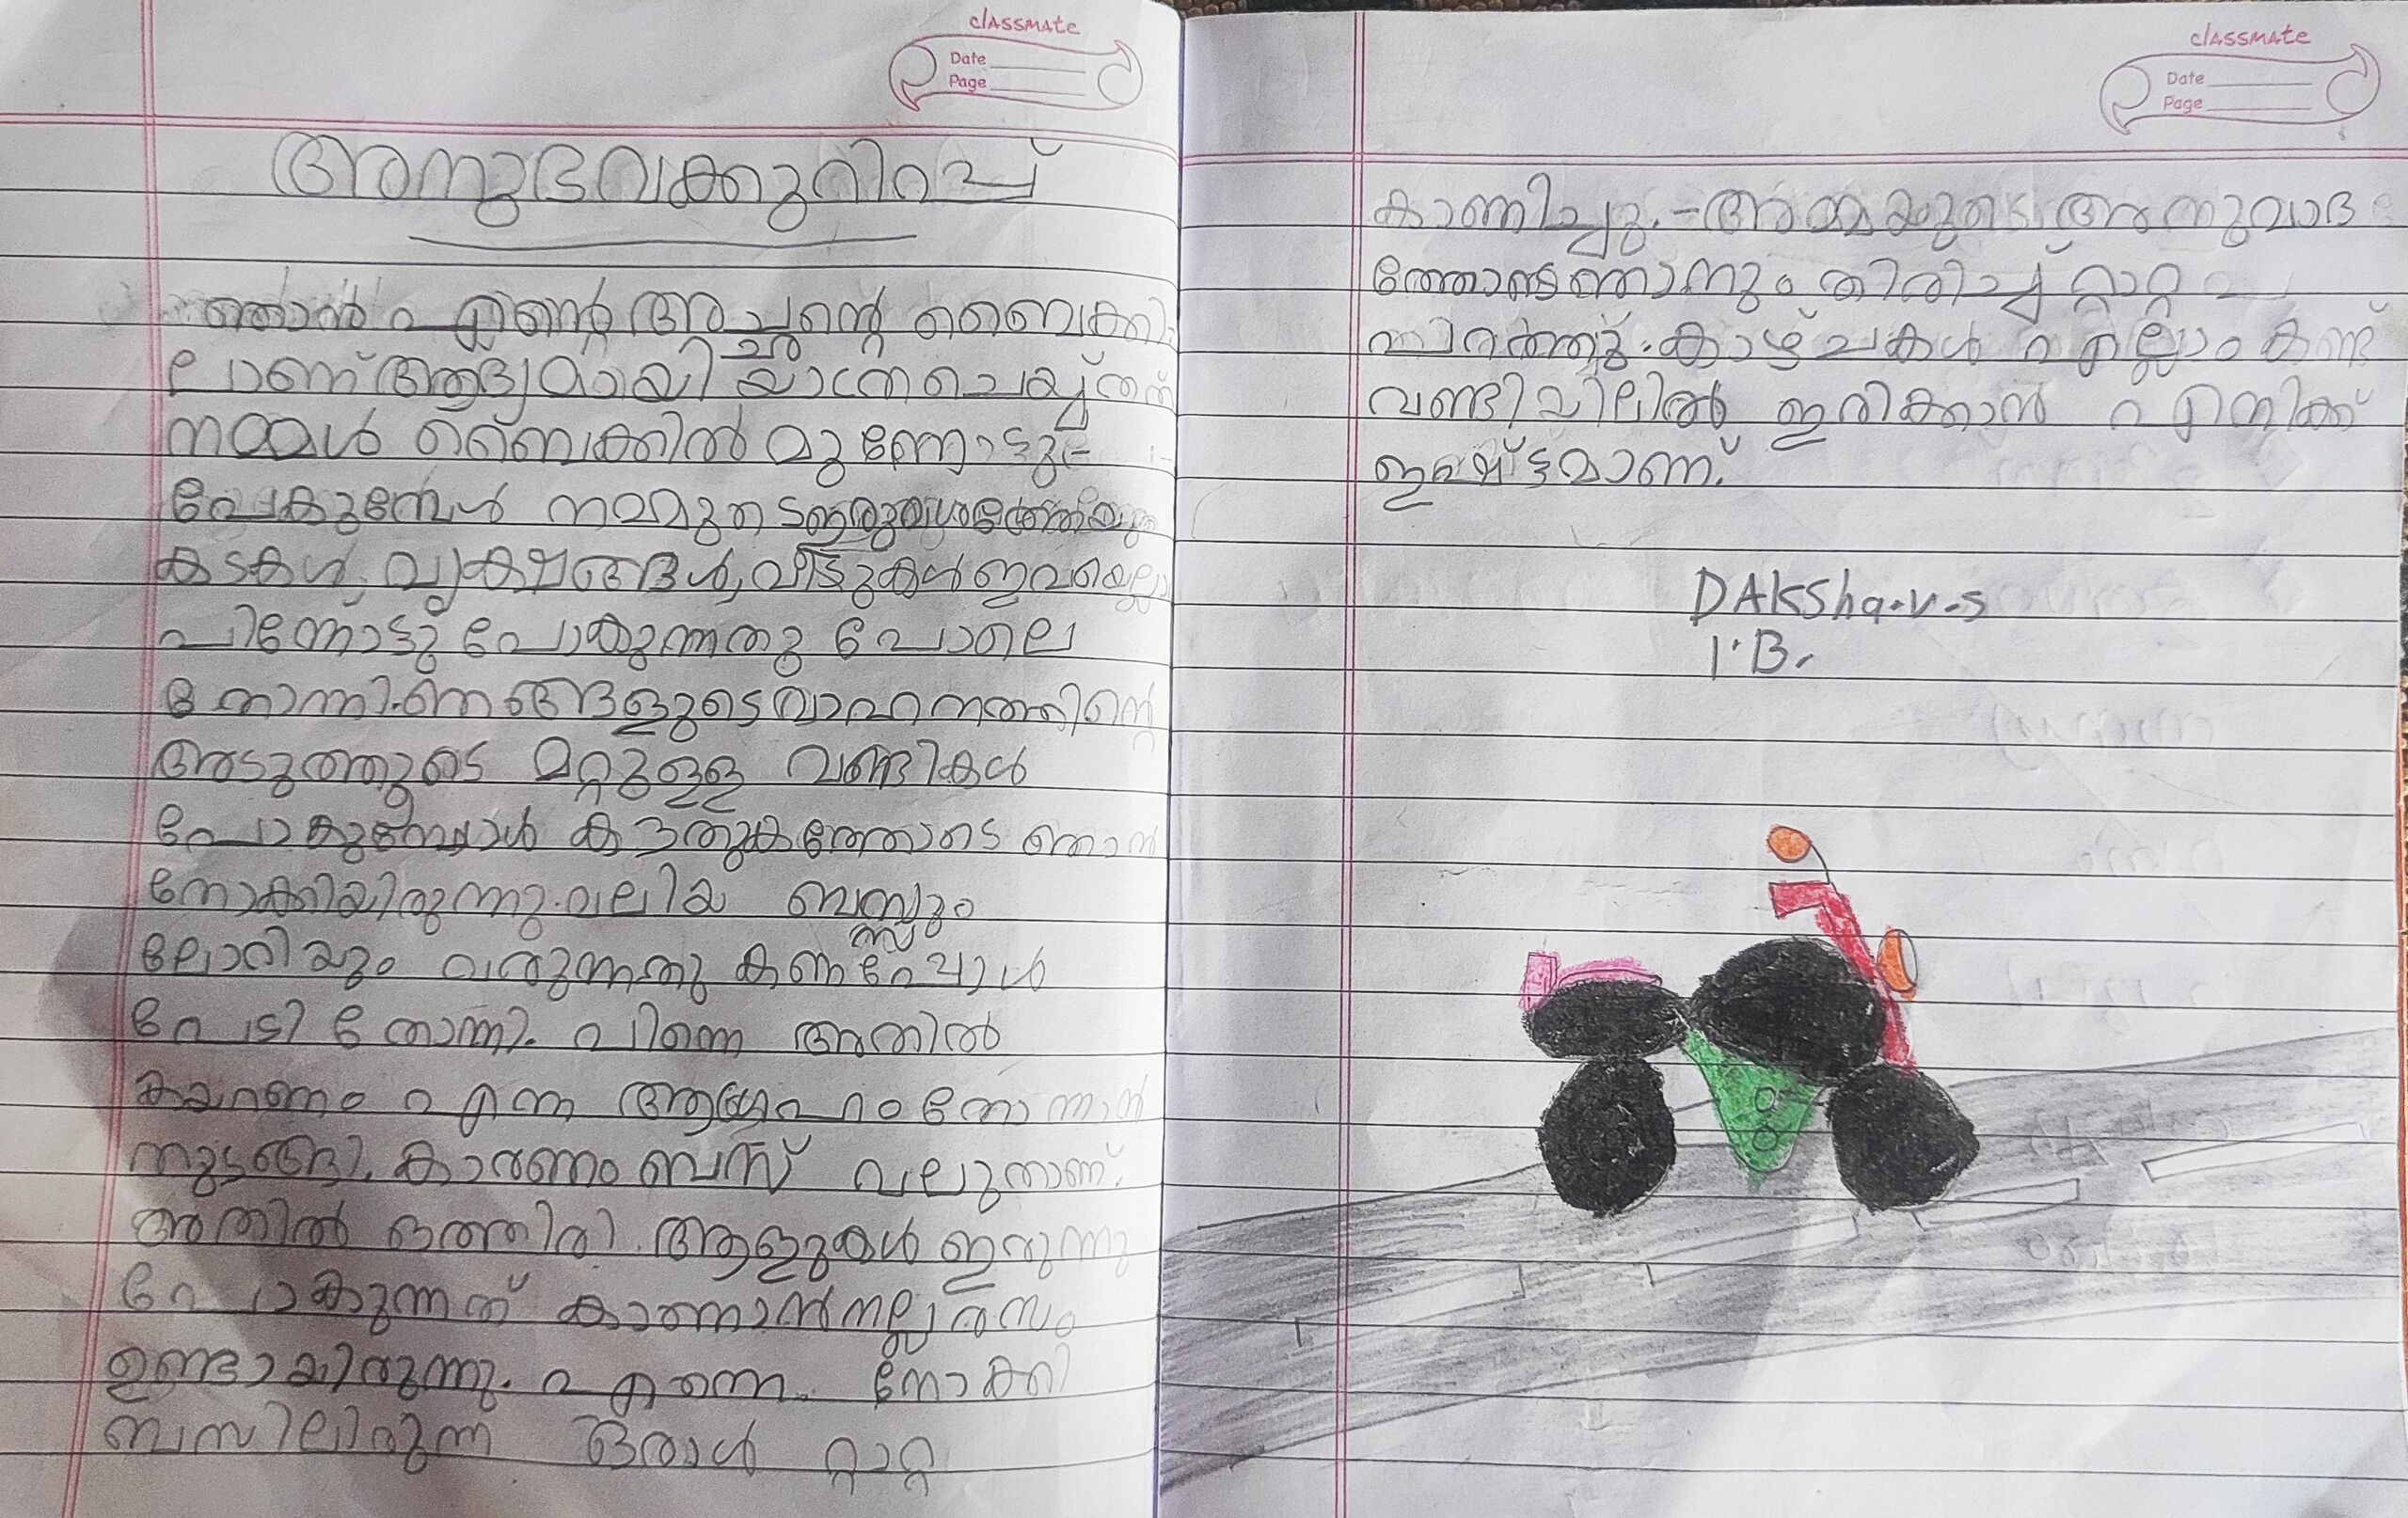 classmate
Date
Page
അനുഭവക്കുറിപ്പ്
ഞാൻ എൻ്റെ അച്ഛൻ്റെ ബൈക്കി
ലാണ് ആദ്യമായി യാത്ര ചെയ്തത്
നമ്മൾ ബൈക്കിൽ മുന്നോട്ടു
പോകുമ്പോൾ നമ്മുടെ ഇരുവശത്തെയും
കടകൾ, വൃക്ഷങ്ങൾ, വീട്ടുകൾ ഇവയെല്ലാ
പിന്നോട്ടു പോകുന്നതു പോലെ
തോന്നി. ഞങ്ങളുടെ വാഹനത്തിൻ്റെ
അടുത്തുടെ മറ്റുള്ള വണ്ടികൾ
പോകുമ്പോൾ കൗതുകത്തോടെ ഞാൻ
നോക്കിയിരുന്നു. വലിയ ബസ്സും
ലോറിയും വരുന്നതു കണ്ടപ്പോൾ
പേടി തോന്നി. പിന്നെ അതിൽ
കയറണം എന്ന ആഗ്രഹം തോന്നാൻ
തുടങ്ങി. കാരണം ബസ് വലുതാണ്.
അതിൽ ഒത്തിരി ആളുകൾ ഇരുന്നു
പോകുന്നത് കാണാൻ നല്ല രസം
ഉണ്ടായിരുന്നു. എന്നെ നോക്കി
ബസിലിരുന്ന ഒരാൾ റ്റാറ്റ
classmate
Date
Page
കാണിച്ചു. അമ്മയുടെ അനുവാദ
ത്തോടെ ഞാനും തിരിച്ച് റ്റാറ്റ
കാഴ്ചകൾ എല്ലാം കണ്ട്
വണ്ടിയിലിൽ ഇരിക്കാൻ എനിക്ക്
ഇഷ്ട്ടമാണ്.
DAKSha.v.s
1.B.